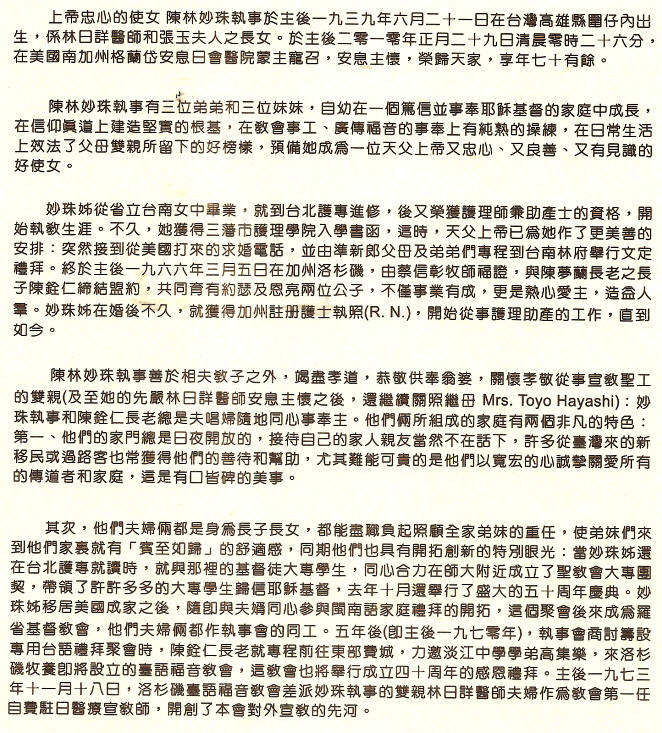 上帝忠心的使女 陳林妙珠執事於主後一九三九年六月二十一日在台灣高雄縣圍仔內出
生，係林日詳醫師和張玉夫人之長女。於主後二零一零年正月二十九日清晨零時二十六分，
在美國南加州格蘭岱安息日會醫院蒙主寵召，安息主懷，榮歸天家，享年七十有餘。
陳林妙珠執事有三位弟弟和三位妹妹，自幼在一個篤信並事奉耶穌基督的家庭中成長，
在信仰眞道上建造堅實的根基，在教會事工、廣傳福音的事奉上有純熟的操練，在日常生活
上效法了父母雙親所留下的好榜樣，預備她成為一位天父上帝又忠心、又良善、又有見識的
好使女。
妙珠姊從省立台南女中畢業，就到台北護專進修，後又榮獲護理師兼助產士的資格，開
始執教生涯。不久，她獲得三藩市護理學院入學書函，這時，天父上帝已為她作了更美善的
安排：突然接到從美國打來的求婚電話，並由準新郎父母及弟弟們專程到台南林府舉行文定
禮拜。終於主後一九六六年三月五日在加州洛杉磯，由蔡信彰牧師福證，與陳夢蘭長老之長
子陳銓仁締結盟約，共同育有約瑟及恩亮兩位公子，不僅事業有成，更是熱心愛主，造益人
羣。妙珠姊在婚後不久，就獲得加州註册護士執照(R. N.)，開始從事護理助產的工作，直到
如今。
陳林妙珠執事善於相夫教子之外，竭盡孝道，恭敬供奉翁婆，關懷孝敬從事宣教聖工
的雙親(及至她的先嚴林日詳醫師安息主懷之後，還繼續關照繼母 Mrs. Toyo Hayashi)：妙
珠執事和陳銓仁長老總是夫唱婦隨地同心事奉主。他們倆所組成的家庭有兩個非凡的特色：
第一、他們的家門總是日夜開放的，接待自己的家人親友當然不在話下，許多從臺灣來的新
移民或過路客也常獲得他們的善待和幫助，尤其難能可貴的是他們以寬宏的心誠摯關愛所有
的傳道者和家庭，這是有口皆碑的美事。
其次，他們夫婦倆都是身為長子長女，都能盡職負起照顧全家弟妹的重任，使弟妹們來
到他們家裏就有「賓至如歸」的舒適感，同期他們也具有開拓創新的特別眼光：當妙珠姊還
在台北護專就讀時，就與那裡的基督徒大專學生，同心合力在師大附近成立了聖教會大專團
契，帶領了許許多多的大專學生歸信耶穌基督，去年十月還舉行了盛大的五十周年慶典。妙
珠姊移居美國成家之後，隨即與夫婿同心參與閩南語家庭禮拜的開拓，這個聚會後來成為羅
省基督教會，他們夫婦倆都作執事會的同工。五年後(即主後一九七零年)，執事會商討籌設
專用台語禮拜聚會時，陳銓仁長老就專程前往東部費城，力邀淡江中學學弟高集樂，來洛杉
磯牧養即將設立的臺語福音教會，這教會也將舉行成立四十周年的感恩禮拜。主後一九七三
年十一月十八日，洛杉磯臺語福音教會差派妙珠執事的雙親林日詳醫師夫婦作為教會第一任
自費駐日醫療宣教師，開創了本會對外宣教的先河。